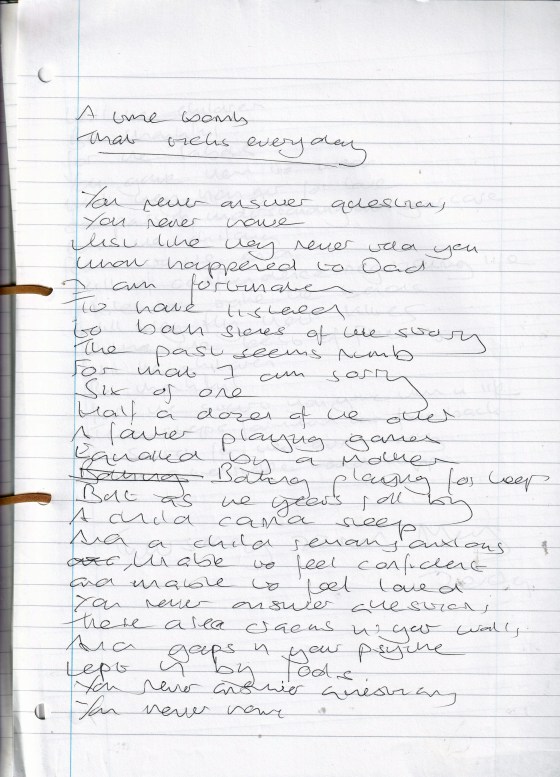 A time bomb
That ticks everyday
You never answer questions,
You never have
Just like they never told you
What happened to Dad
I am fortunate
To have listened
to both sides of the story
The past seems numb
For that I am sorry
Six of one
Half a dozen of the other
A father playing games
Equalled by a Mother
Bolting playing for keeps
But as the years roll by
A child can't sleep
And a child remains anxious
Unable to feel confident
and unable to feel loved
You never answer questions,
There are cracks in your walls,
And gaps in your psyche
kept by fools.
You never answer questions
You never have